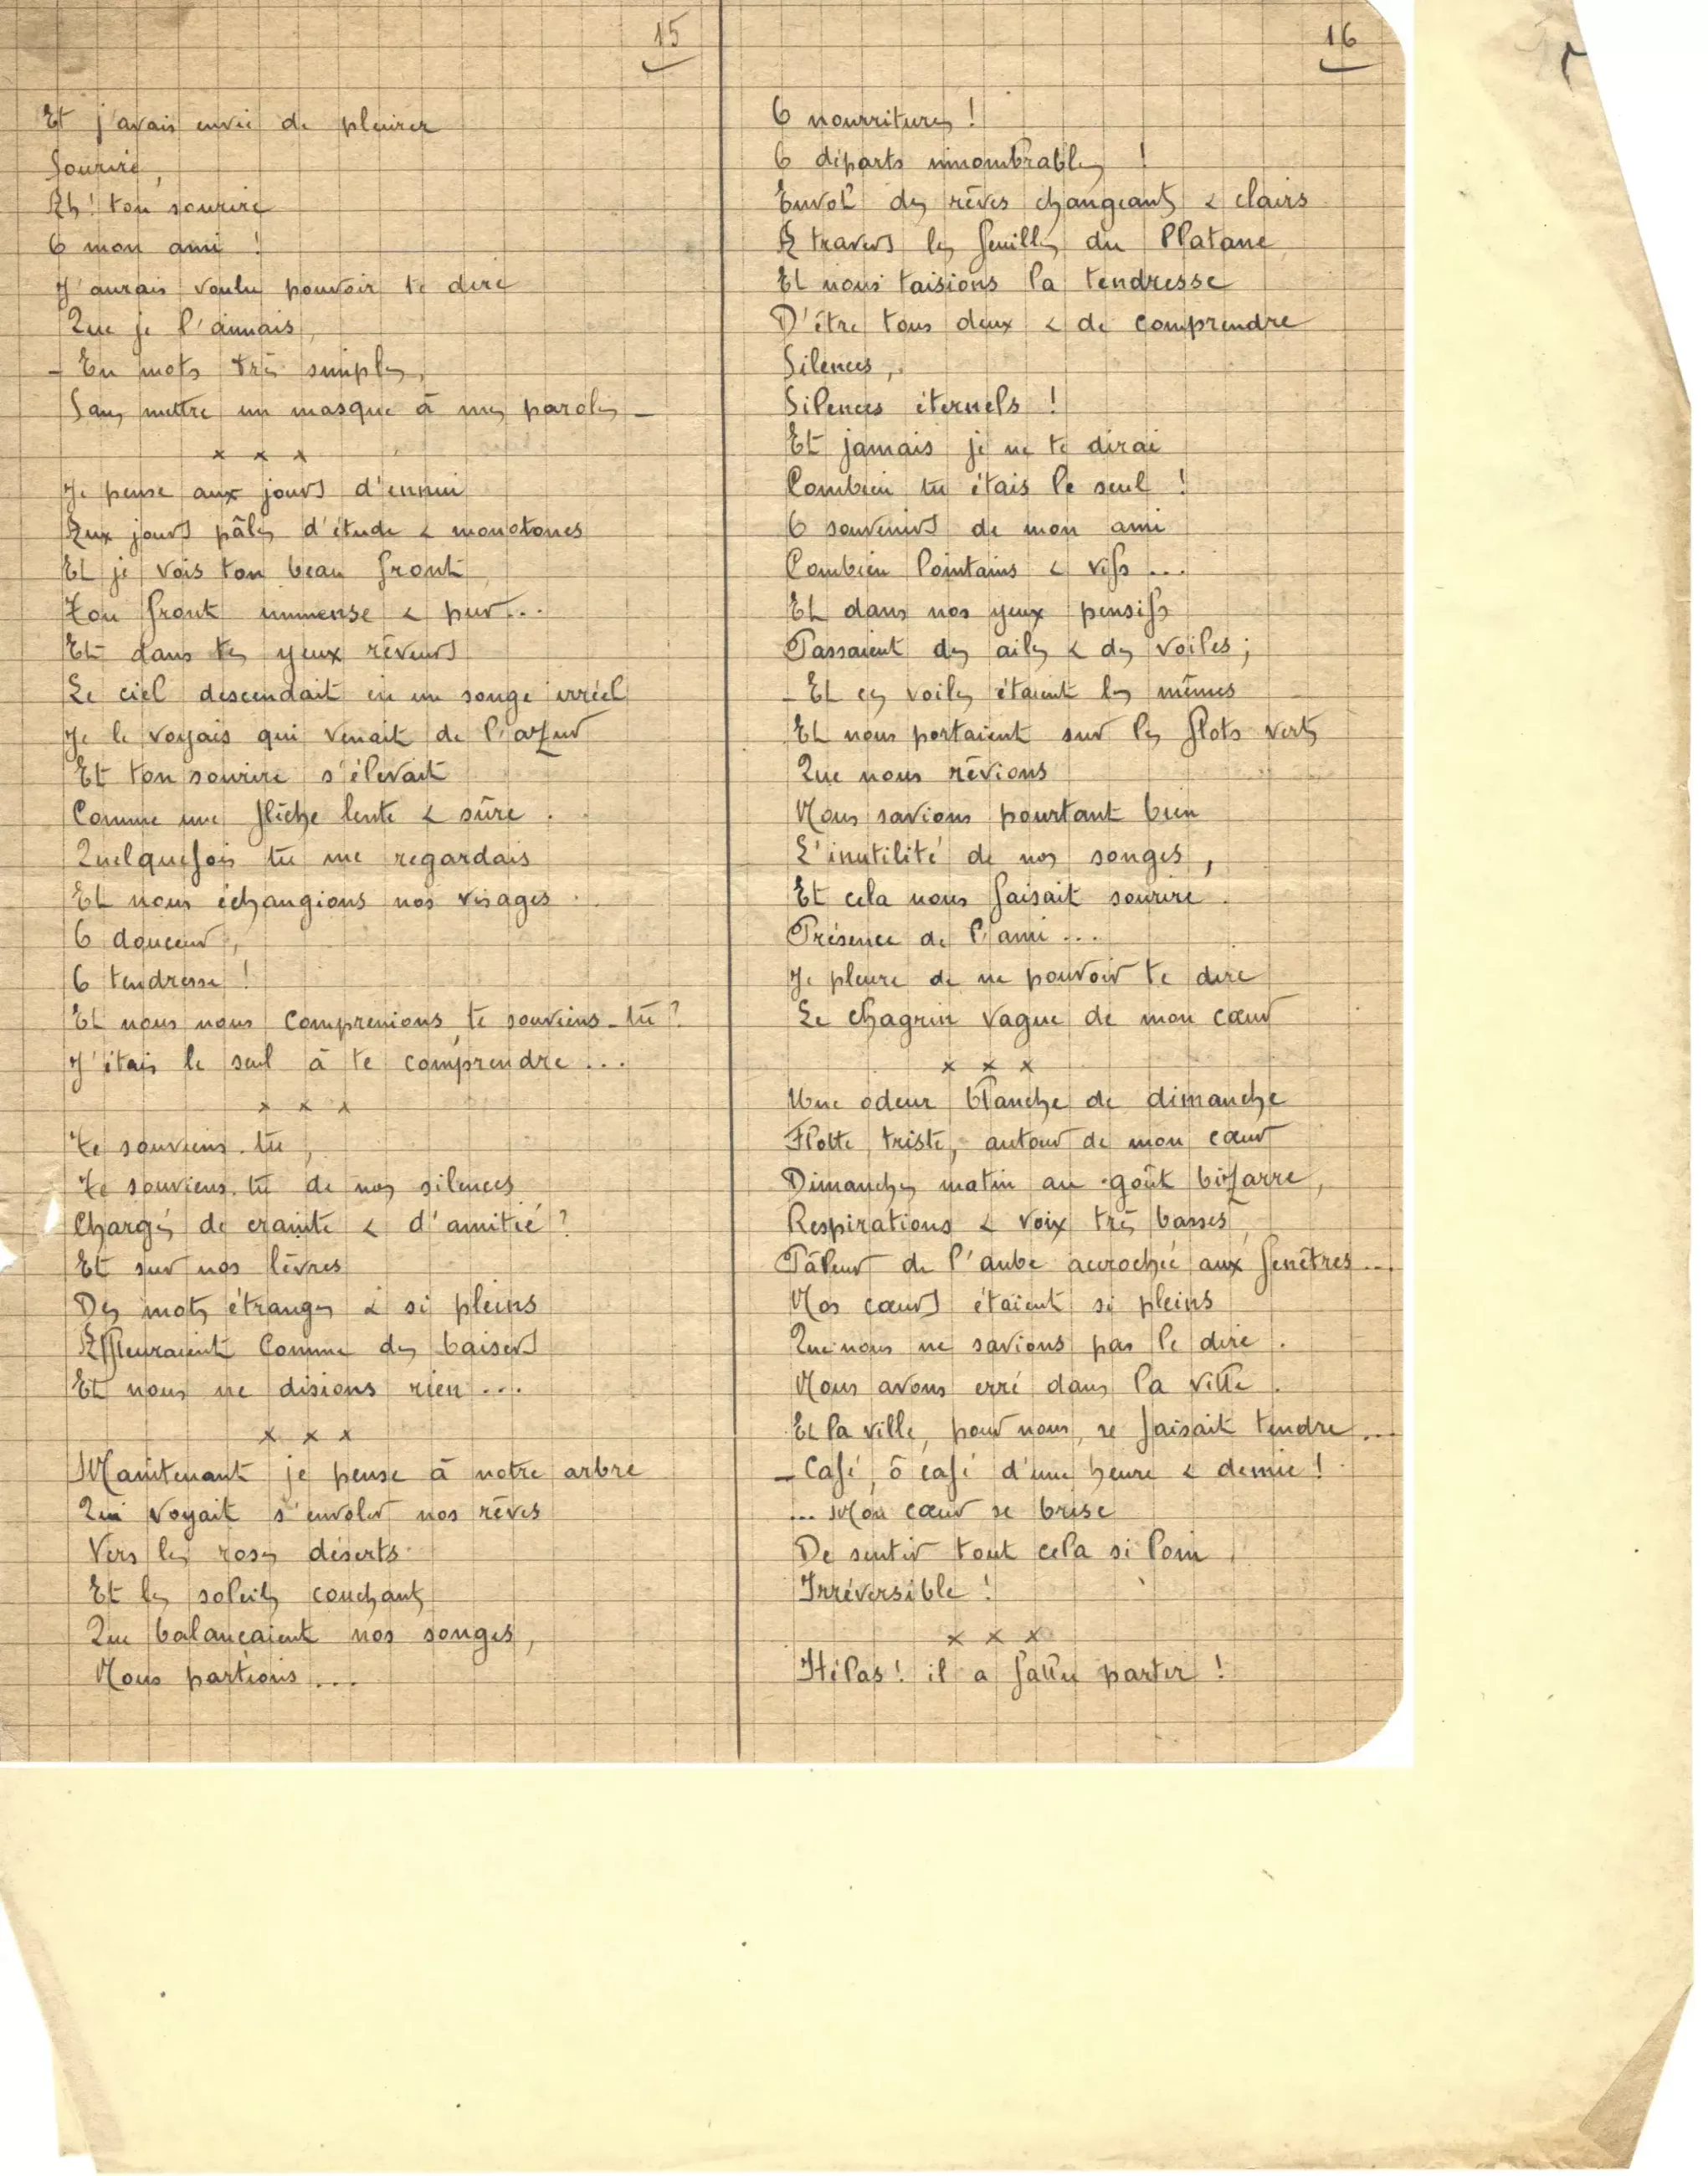 15
Et j'avais envie de pleurer
Sourire,
Ah! ton sourire
O mon ami !
J'aurais voulu pouvoir te dire
Que je l'aimais,
_ En mots très simples,
Sans mettre un masque à mes paroles _
x x x
Je pense aux jours d'ennui
Aux jours pâles d'étude & monotones
Et je vois ton beau front
Ton front immense & pur...
Et dans tes yeux rêveurs
Le ciel descendait en un songe irréel
Je le voyais qui venait de l'azur
Et ton sourire s'élevait
Comme une flèche lente & sûre .
Quelquefois tu me regardais
Et nous échangions nos visages .
O douceur,
O tendresse !
Et nous nous comprenions, te souviens-tu ?
J'étais le seul à te comprendre ...
x x x
Te souviens-tu,
Te souviens-tu de nos silences
Chargés de crainte & d'amitié ?
Et sur nos lèvres
Des mots étranges & si pleins
Affleuraient comme des baisers
Et nous ne disions rien ...
x x x
Maintenant je pense à notre arbre
Qui voyait s'envoler nos rêves
Vers les roses déserts.
Et les soleils couchants
Que balançaient nos songes,
Nous partions ...
16
O nourritures !
O départs innombrables !
Envol des rêves changeants & clairs
A travers les feuilles du Platane
Et nous taisions la tendresse
D'être tous deux & de comprendre
Silences,
Silences éternels !
Et jamais je ne te dirai
Combien tu étais le seul !
O souvenirs de mon ami
Combien lointains & vifs ...
Et dans nos yeux pensifs
Passaient des ailes & des voiles;
_ Et ces voiles étaient les mêmes
Et nous portaient sur les flots verts
Que nous rêvions
Nous savions pourtant bien
L'inutilité de nos songes,
Et cela nous faisait sourire .
Présence de l'ami ...
Je pleure de ne pouvoir te dire
Le chagrin vague de mon cœur
x x x
Une odeur blanche de dimanche
Flotte, triste, autour de mon cœur
Dimanches matin au goût bizarre,
Respirations & voix très basses,
Pâleur de l'aube accrochée aux fenêtres ...
Nos cœurs étaient si pleins
Que nous ne savions pas le dire .
Nous avons erré dans la ville .
Et la ville, pour nous, se faisait tendre ...
_ Café, ô café d'une heure & demie !
... Mon cœur se brise
De sentir tout cela si loin
Irréversible !
x x x
Hélas! il a fallu partir !